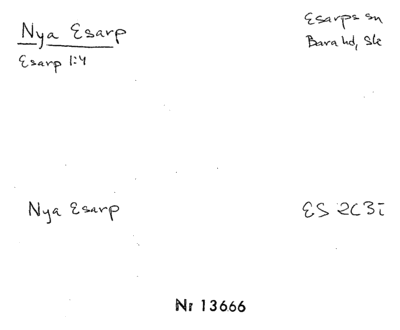 Nya Esarp
Esarp 1:4
Esarps sn
Bara hd, Sk
Nya Esarp
ES 2C3i
Nr 13666